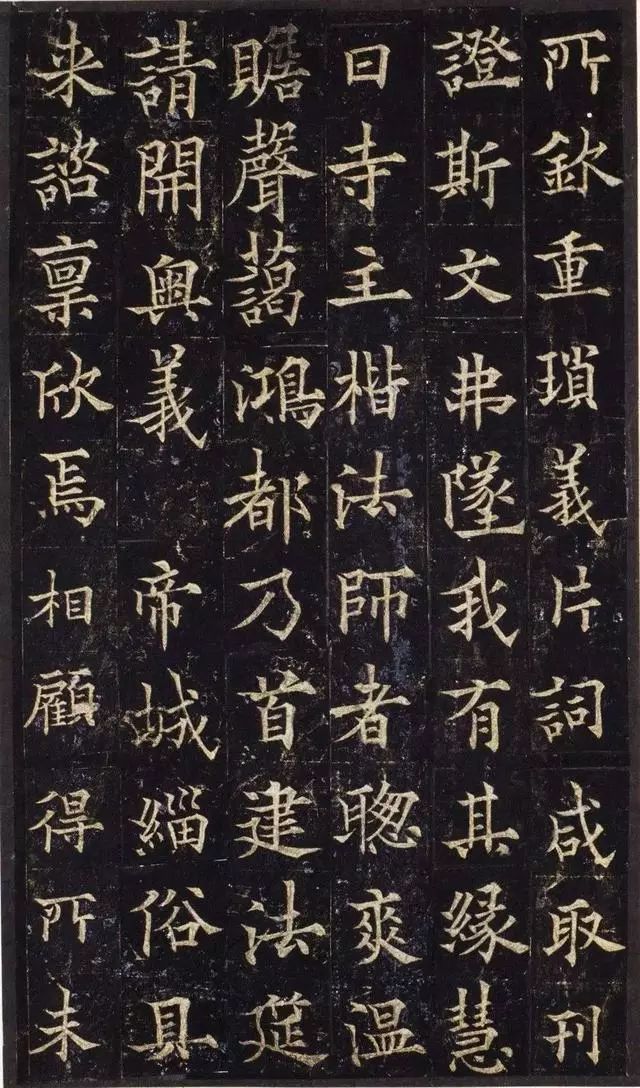 所欽重瑣義片詞咸取刊
證斯文弗墜我有其緣慧
日寺主楷法師者聰爽溫
贍聲藹鴻都乃首建法莚
請開奧義帝城緇俗具
来諮稟欣焉相顧得所未